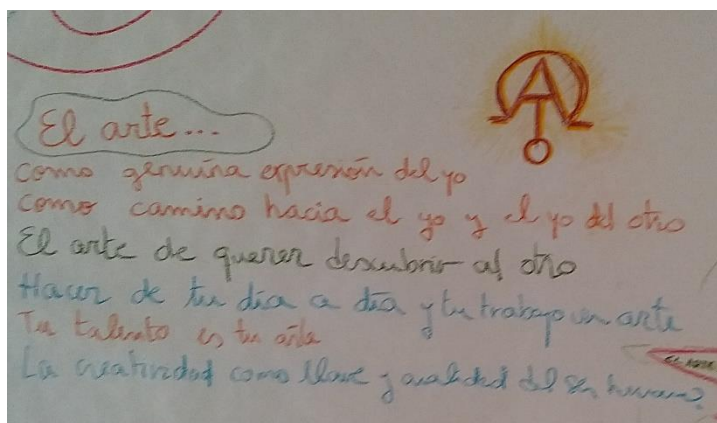 El arte...
como genuina expresión del yo
como camino hacia el yo y el yo del otro
El arte de querer descubrir al otro
Hacer de tu día a día y tu trabajo un arte
Tu talento es tu arte
La creatividad como llave y cualidad del ser humano?